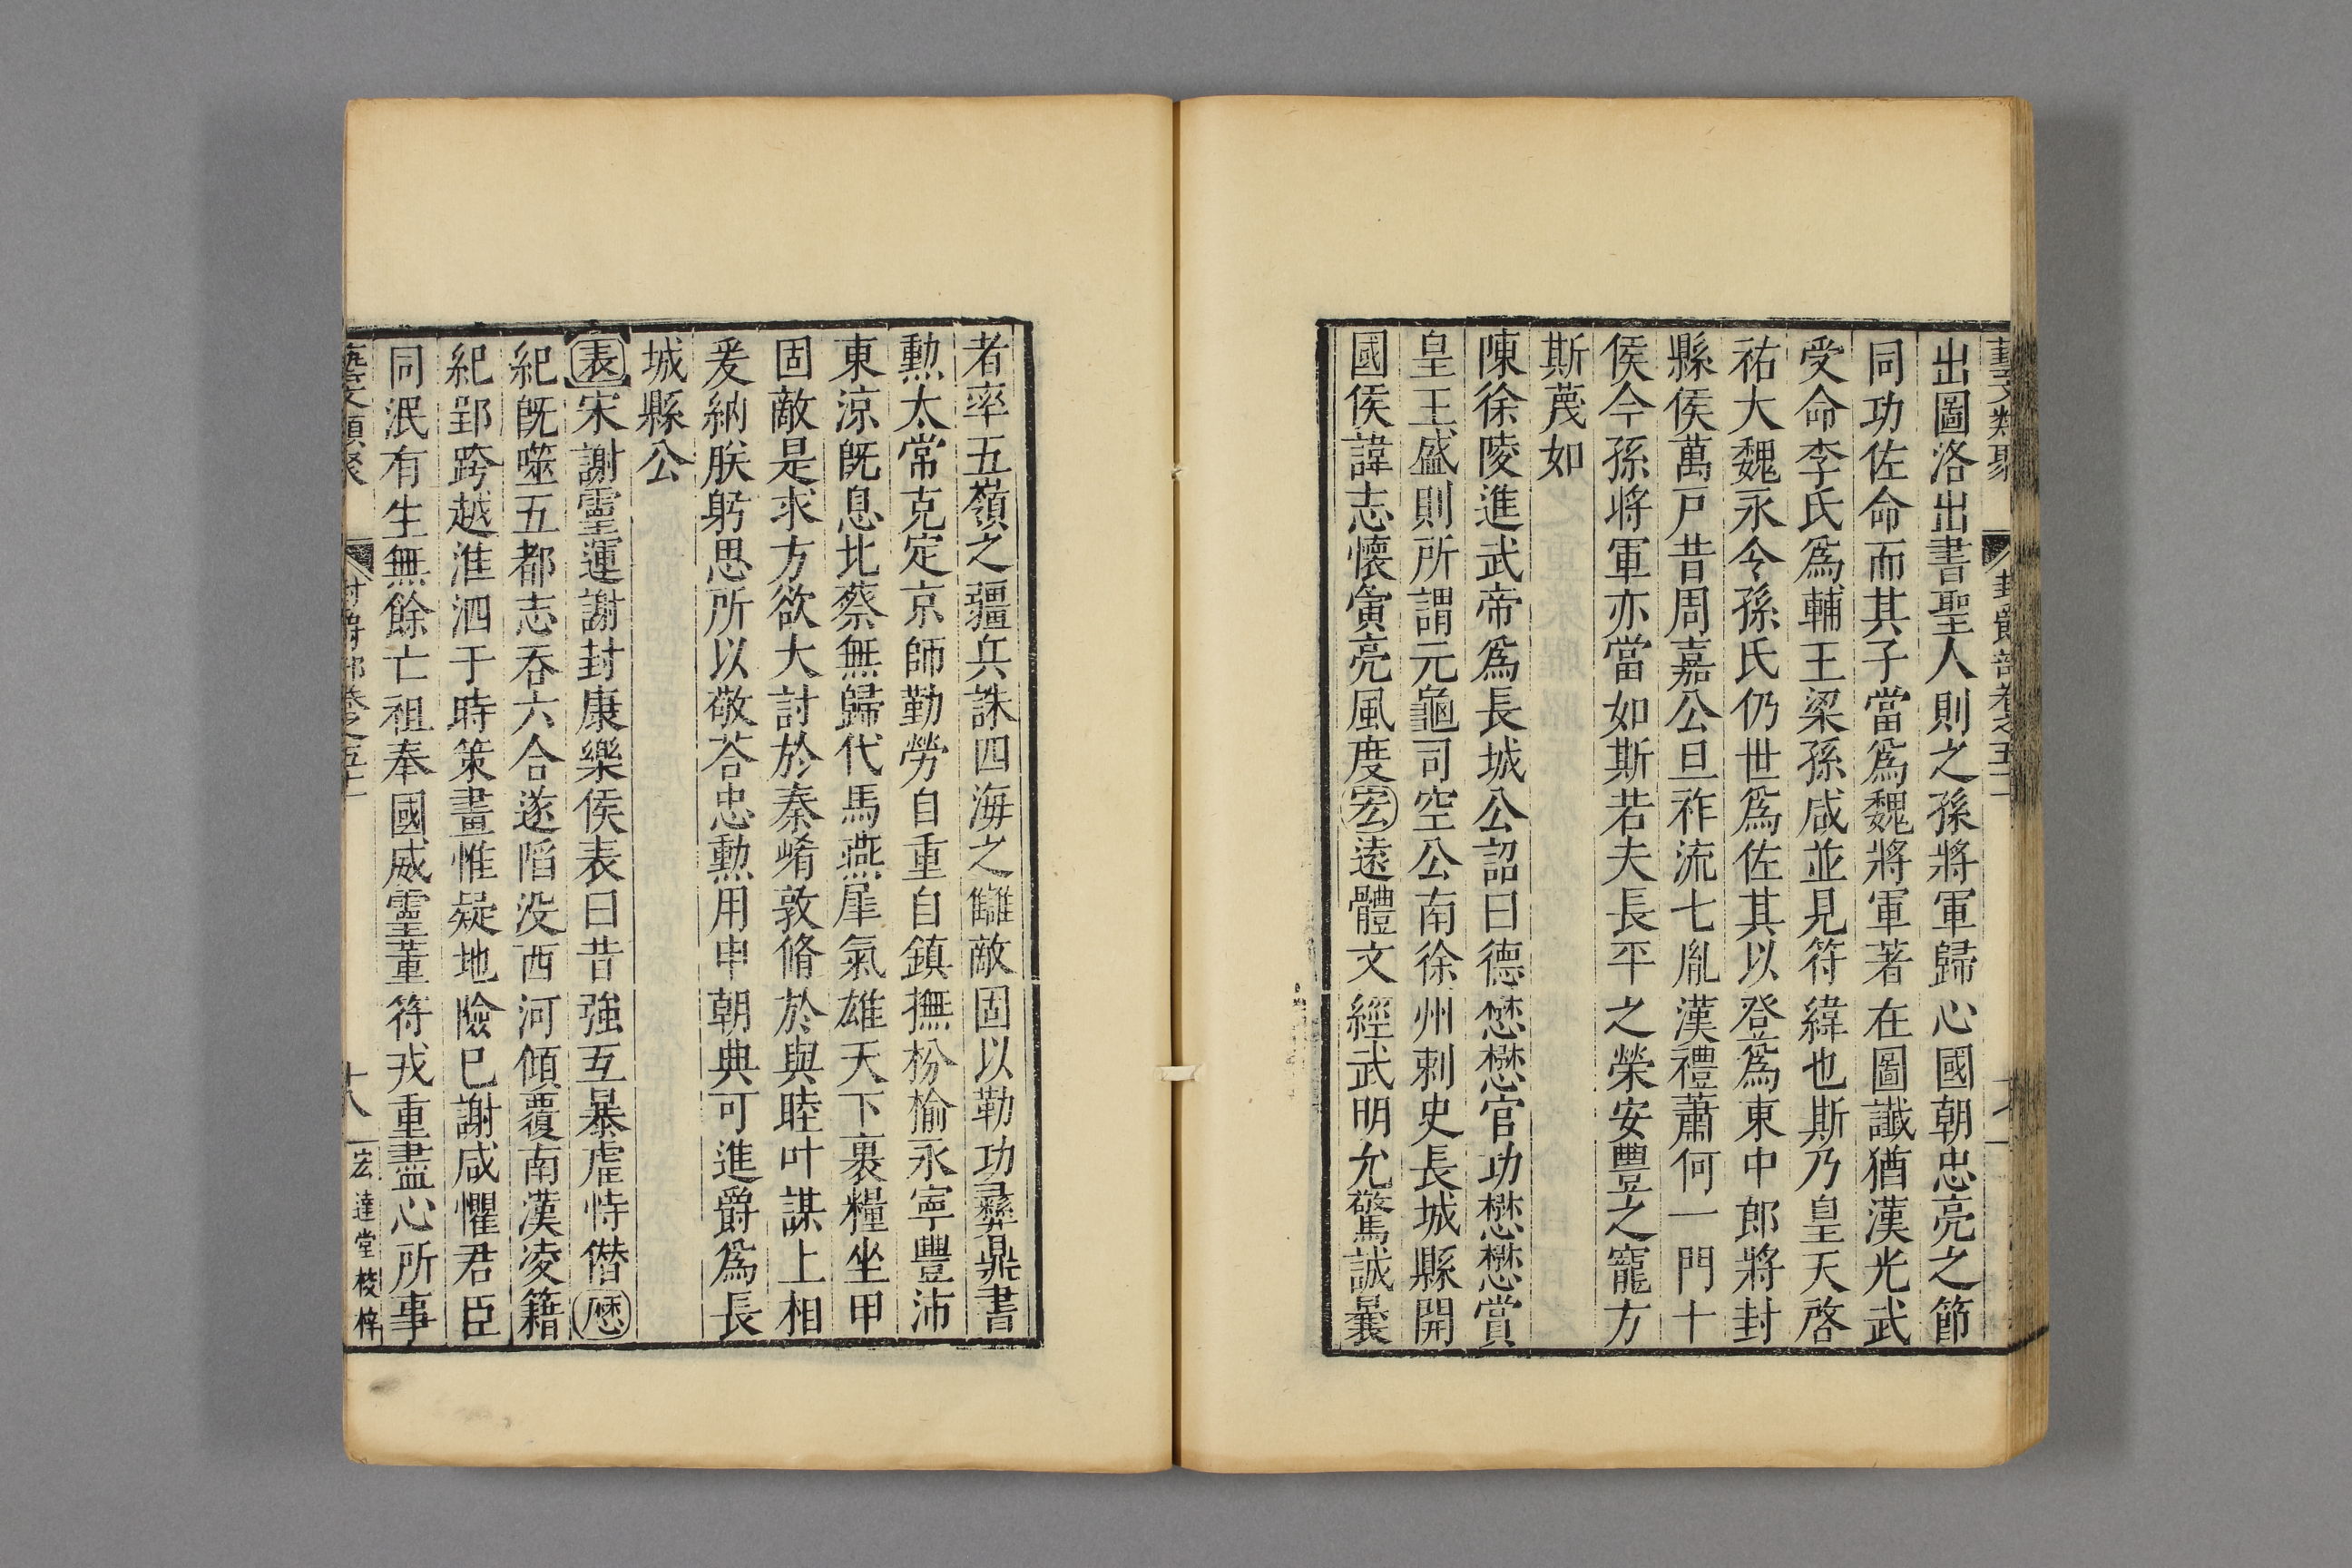 藝文類聚 封爵部卷之五十一
出圖洛出書聖人則之孫將軍歸心國朝忠亮之節
同功佐命而其子當爲魏將軍著在圖讖猶漢光武
受命李氏爲輔王梁孫咸並見符緯也斯乃皇天啓
祐大魏永令孫氏仍世爲佐其以登爲東中郎將封
縣侯萬戸昔周嘉公旦祚流七胤漢禮蕭何一門十
侯今孫將軍亦當如斯若夫長平之榮安豐之寵方
斯蔑如
陳徐陵進武帝爲長城公詔曰德懋懋官功懋懋賞
皇王盛則所謂元龜司空公南徐州刺史長城縣開
國侯諱志懷寅亮風度宏遠體文經武明允驚誠曩
者率五嶺之疆兵誅四海之讎敵固以勒功彝鼎書
勲太常克定京師勤勞自重自鎮撫枌榆永寧豐沛
東涼旣息北蔡無歸代馬燕犀氣雄天下裹糧坐甲
固敵是求方欲大討於秦崤敦脩於與睦叶謀上相
爰納朕躬思所以敬荅忠勲用申朝典可進爵爲長
城縣公
表宋謝靈運謝封康樂侯表曰昔強互暴虐恃僭厯
紀旣噬五都志吞六合遂䧟没西河傾覆南漢凌籍
紀郢跨越淮泗于時策畫惟疑地險已謝咸懼君臣
同泯有生無餘亡祖奉國威靈董符戎重盡心所事
藝文類聚 封爵部卷之五十一 十八 宏達堂校梓